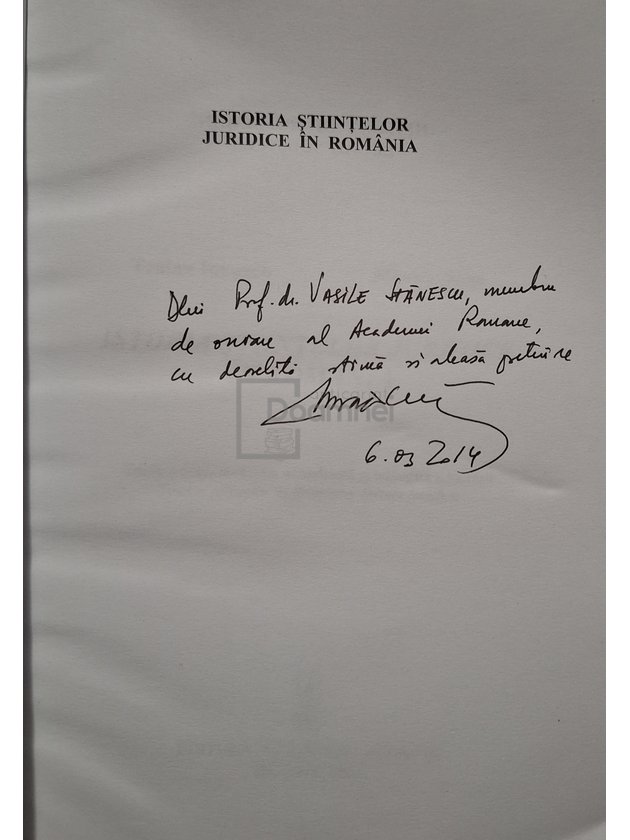 ISTORIA ȘTIINȚELOR
JURIDICE ÎN ROMÂNIA
Dlui Prof. dr. VASILE STĂNESCU, membru
de onoare al Academiei Romane,
cu deosebită stimă si aleasă prețuire
Doamnei
6.03 2014